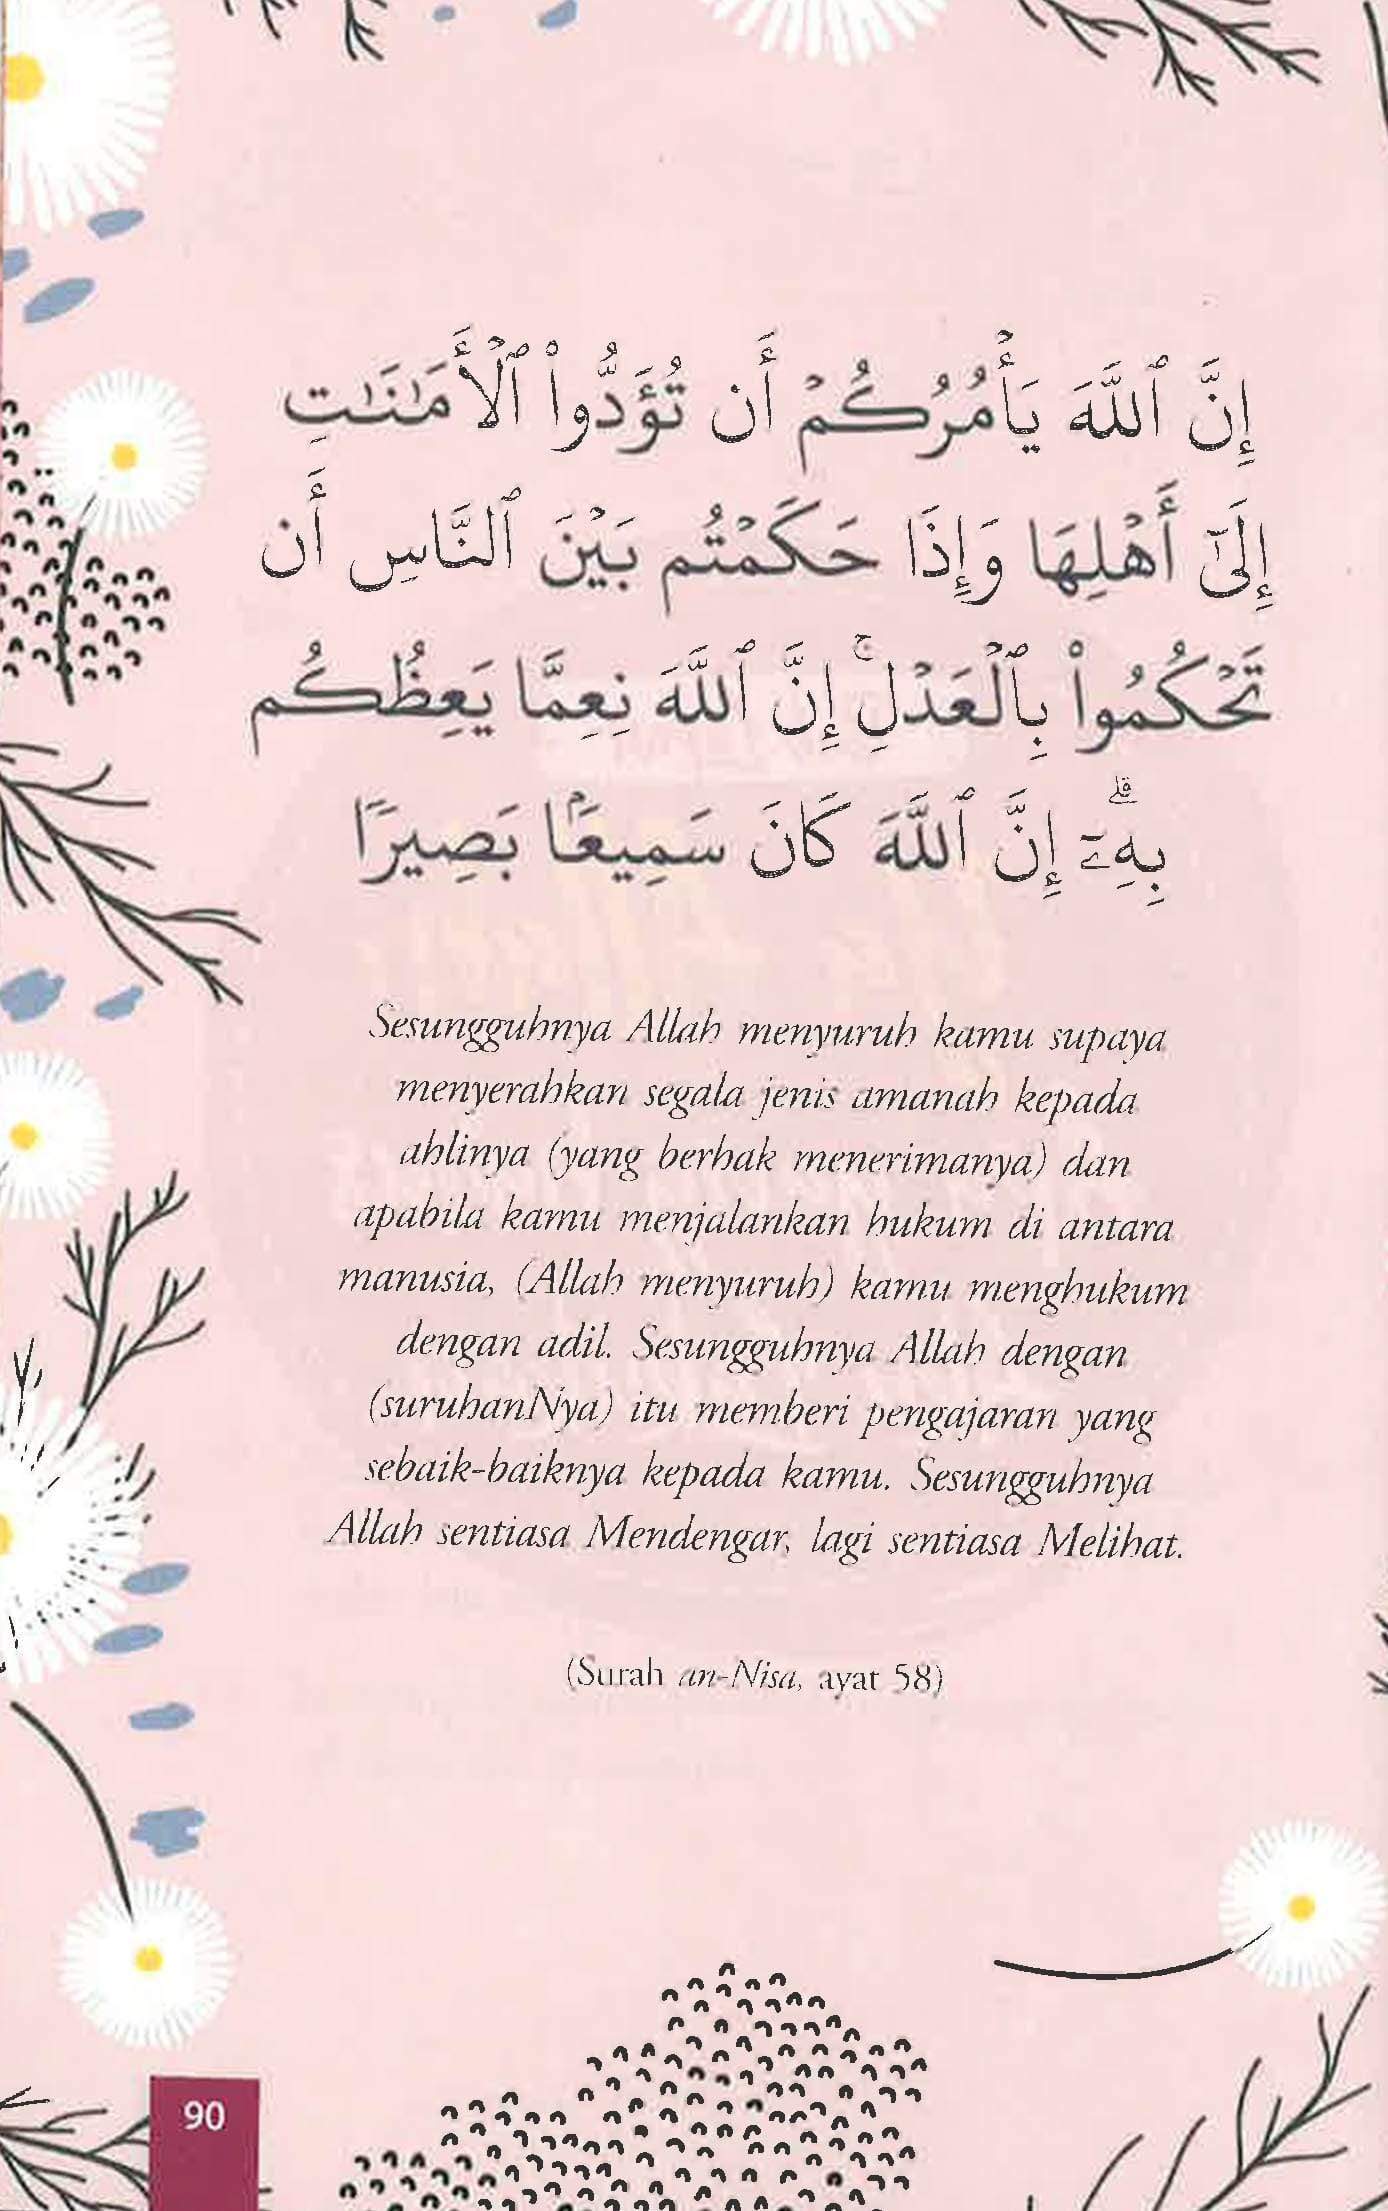 إِنَّ ٱللَّهَ يَأْمُرُكُمْ أَن تُؤَدُّوا۟ ٱلْأَمَـٰنَـٰتِ
إِلَىٰٓ أَهْلِهَا وَإِذَا حَكَمْتُم بَيْنَ ٱلنَّاسِ أَن
تَحْكُمُوا۟ بِٱلْعَدْلِ ۚ إِنَّ ٱللَّهَ نِعِمَّا يَعِظُكُم
بِهِۦٓ ۗ إِنَّ ٱللَّهَ كَانَ سَمِيعًۢا بَصِيرًا
Sesungguhnya Allah menyuruh kamu supaya
menyerahkan segala jenis amanah kepada
ahlinya (yang berhak menerimanya) dan
apabila kamu menjalankan hukum di antara
manusia, (Allah menyuruh) kamu menghukum
dengan adil. Sesungguhnya Allah dengan
(suruhanNya) itu memberi pengajaran yang
sebaik-baiknya kepada kamu. Sesungguhnya
Allah sentiasa Mendengar, lagi sentiasa Melihat.
(Surah an-Nisa, ayat 58)
90